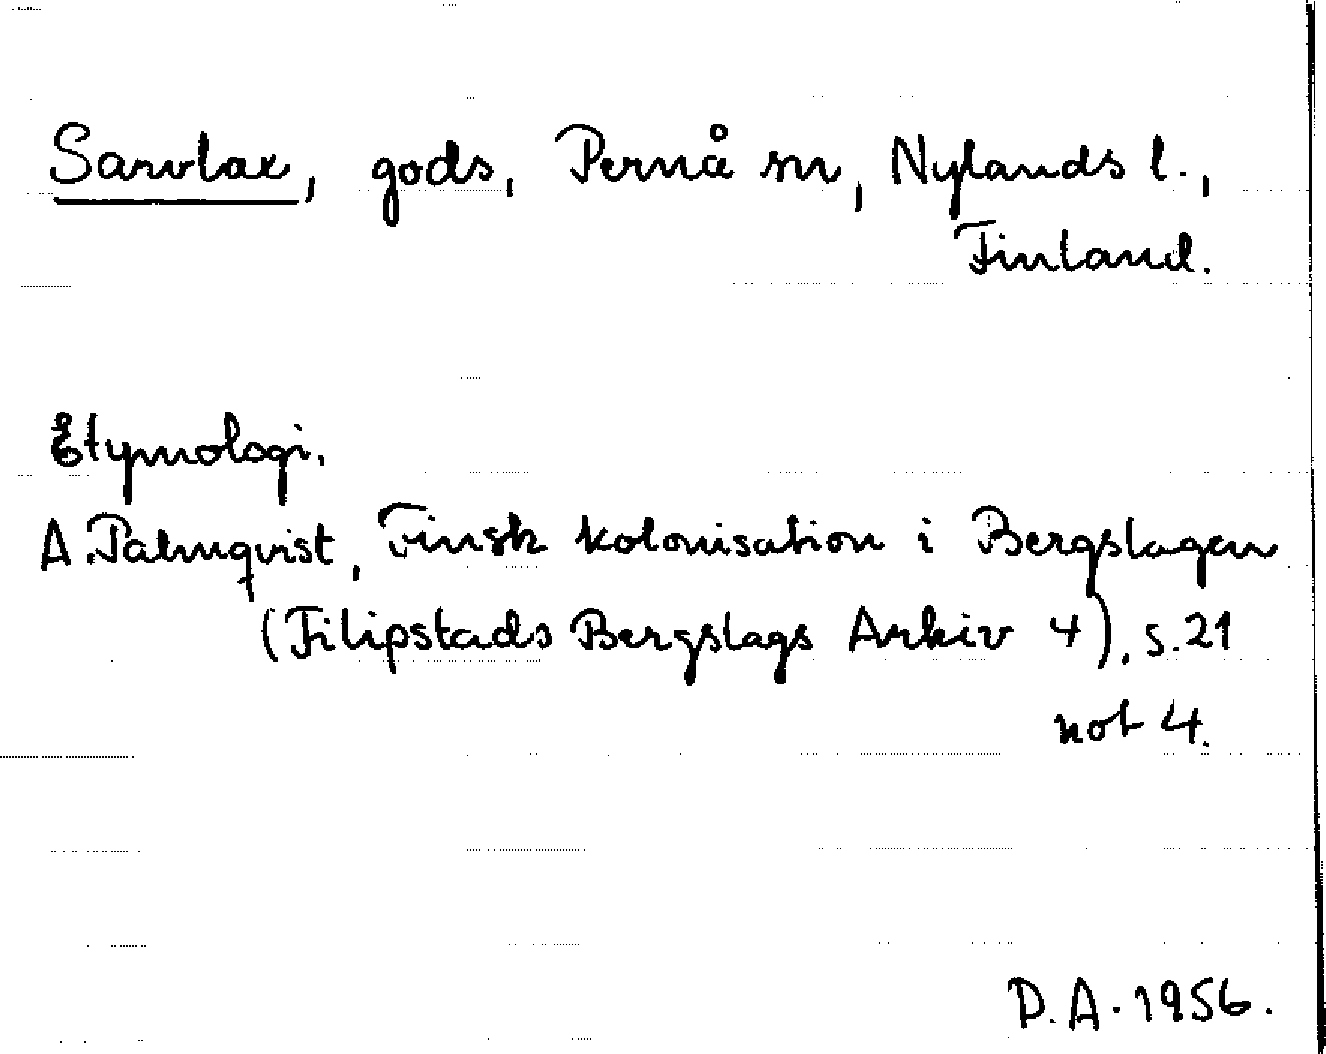 Sarvlax, gods, Pernå sn, Nylands l.,
Finland.
Etymologi.
A. Palmqvist, Finsk kolonisation i Bergslagen
(Filipstads Bergslags Arkiv 4), s. 21
not 4.
D.A. 1956.